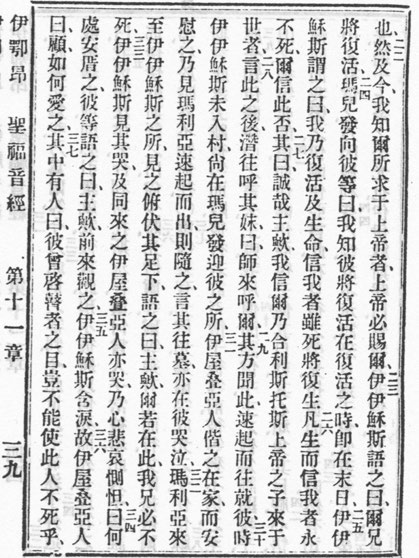 也、二二然及今我知爾所求于上帝者、上帝必賜爾、二三伊伊穌斯語之曰、爾兄
將復活、二四瑪兒發向彼等曰、我知彼將復活在復活之時、卽在末日、二五伊伊
穌斯謂之曰、我乃復活及生命、信我者、雖死將復生、二六凡生而信我者、永
不死、爾信此否、二七其曰、誠哉主歟、我信爾乃合利斯托斯上帝之子來于
世者、二八言此之後、潛往呼其妹曰、師來呼爾、二九其方聞此、速起而往就彼、三十時
伊伊穌斯未入村、尙在瑪兒發迎彼之所、三一伊屋疊亞人偕之在家而安
慰之、乃見瑪利亞速起而出、則隨之、言其往墓、亦在彼哭泣、三二瑪利亞來
至伊伊穌斯之所、見之、俯伏其足下、語之曰、主歟、爾若在此、我兄必不
死、三三伊伊穌斯見其哭、及同來之伊屋疊亞人亦哭、乃心悲哀惻怛、三四曰、何
處安厝之、彼等語之曰、主歟、前來觀之、三五伊伊穌斯含淚、三六故伊屋疊亞人
曰、顧如何愛之、三七其中有人曰、彼曾啓瞽者之目、豈不能使此人不死乎、
伊鄂昂 聖福音經 第十一章 三九